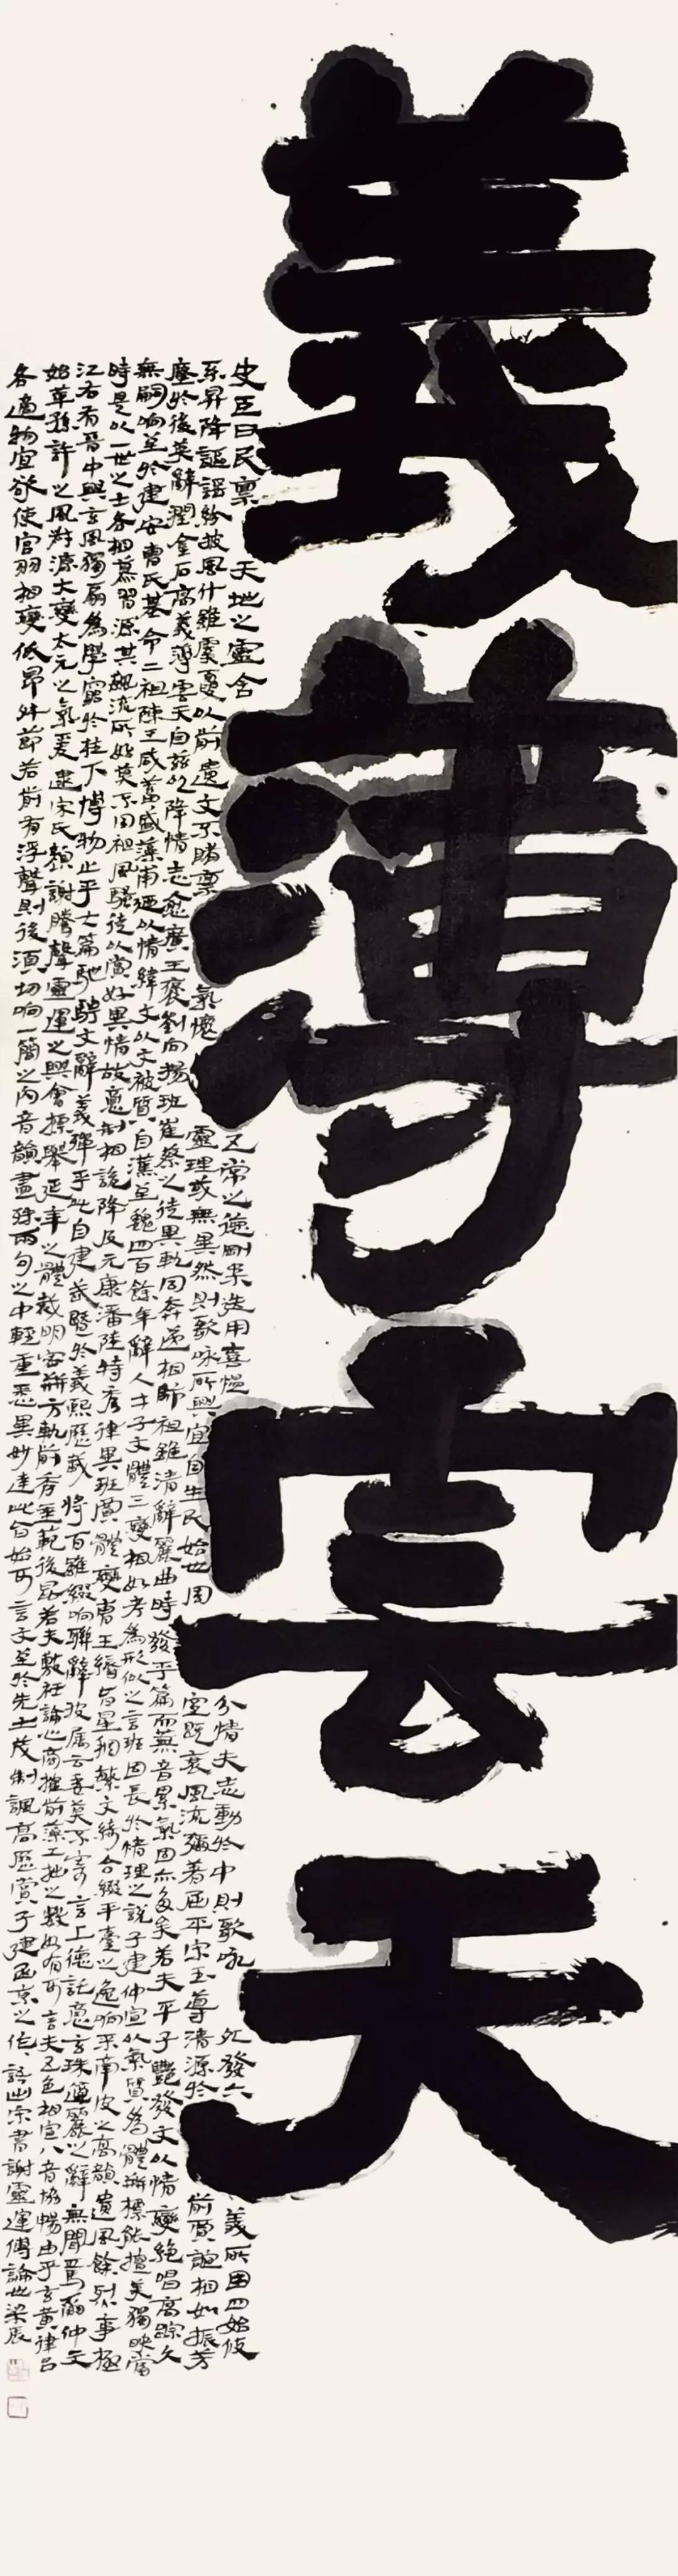 義薄雲天
史臣曰民稟天地之靈含五常之德剛柔迭用喜慍分情夫志動於中則歌詠外發六義所因四始攸
系昇降謳謠紛披風什雖虞夏以前遺文不睹稟氣懷靈理或無異然則歌咏所興宜自生民始也周室既衰風流彌著屈平宋玉導清源於前賈誼相如振芳
塵於後英辭潤金石高義薄雲天自茲以降情志愈廣王褒劉向揚班崔蔡之徒異軌同奔遞相師祖雖清辭麗曲時發乎篇而蕪音累氣固亦多矣若夫平子艷發文以情變絕唱高蹤久
無嗣响至於建安曹氏基命二祖陳王咸蓄盛藻甫廼以情緯文以文被質自漢至魏四百餘年辭人才子文體三變相如考為形似之言班固長於情理之說子建仲宣以氣質為體並標能擅美獨映當
時是以一世之士各相慕習源其飆流所始莫不同祖風騷徒以賞好異情故意制相詭降及元康潘陸特秀律異班賈體變曹王縟旨星稠繁文綺合綴平臺之逸响采南皮之高韻遺風餘烈事極
江右有晉中興玄風獨扇為學窮於柱下博物止乎七篇馳騁文辭義殫乎此自建武暨於義熙歷載將百雖綴响聯辭波屬云委莫不寄言上德託意玄珠遒麗之辭無聞焉爾仲文
始革孫許之風叔源大變太元之氣爰逮宋氏顏謝騰聲靈運之興會標舉延年之體裁明密並方軌前秀垂範後昆若夫敷衽論心商搉前藻工拙之數如有可言夫五色相宣八音協暢由乎玄黃律呂
各適物宜欲使宮羽相變低昂舛節若前有浮聲則後須切响一簡之內音韻盡殊兩句之中輕重悉異妙達此旨始可言文至於先士茂制諷高歷賞子建函京之作語出宋書謝靈運傳論也梁辰